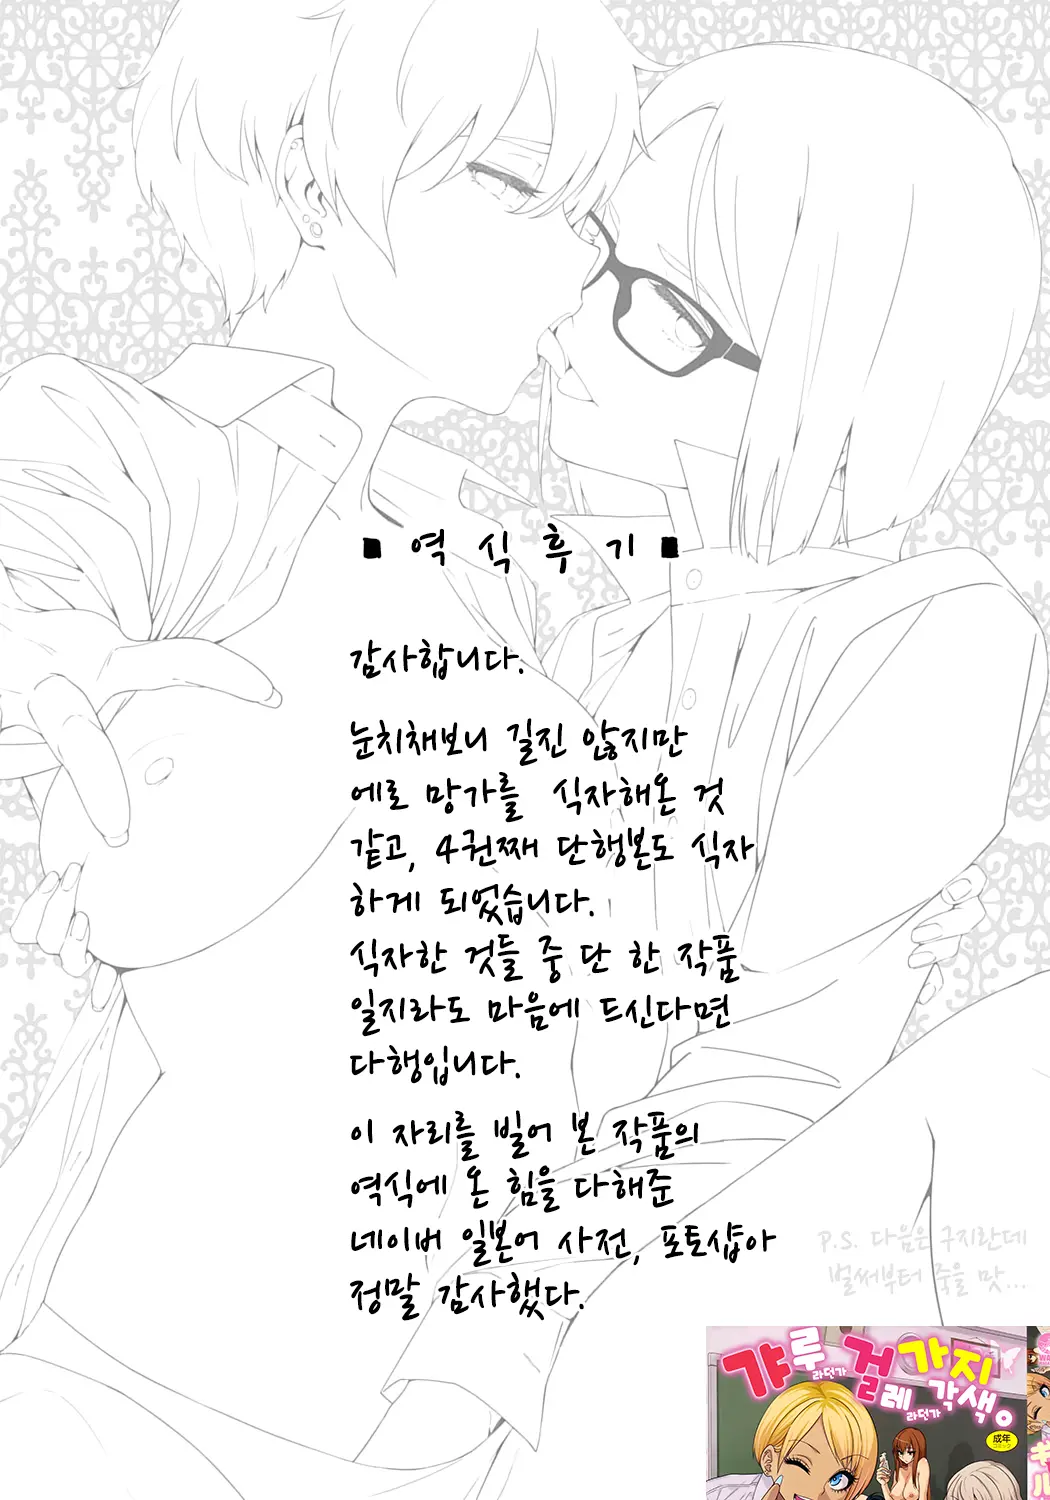 ■ 역 식 후 기 ■
감사합니다.
눈치채보니 길진 않지만
에로 망가를 식자해온 것
같고, 4권째 단행본도 식자
하게 되었습니다.
식자한 것들 중 단 한 작품
일지라도 마음에 드신다면
다행입니다.
이 자리를 빌어 본 작품의
역식에 온 힘을 다해준
네이버 일본어 사전, 포토샵아
정말 감사했다.
P.S. 다음은 구지란데
벌써부터 죽을 맛...
갸루라던가
걸레라던가
가지각색。
成年
コミック